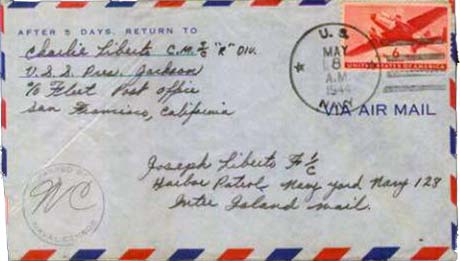 AFTER 5 DAYS, RETURN TO
Charlie Liberto C.M. 3/c "R" Div.
U.S.S. Pres. Jackson
c/o Fleet Post Office
San Francisco, California
U. S.
MAY
8
A.M.
1944
NAVY
6¢
UNITED STATES OF AMERICA
VIA AIR MAIL
Joseph Liberto F 1/c
Harbor Patrol, Navy yard Navy 128
Inter Island mail.
PASSED BY
NAVAL CENSOR